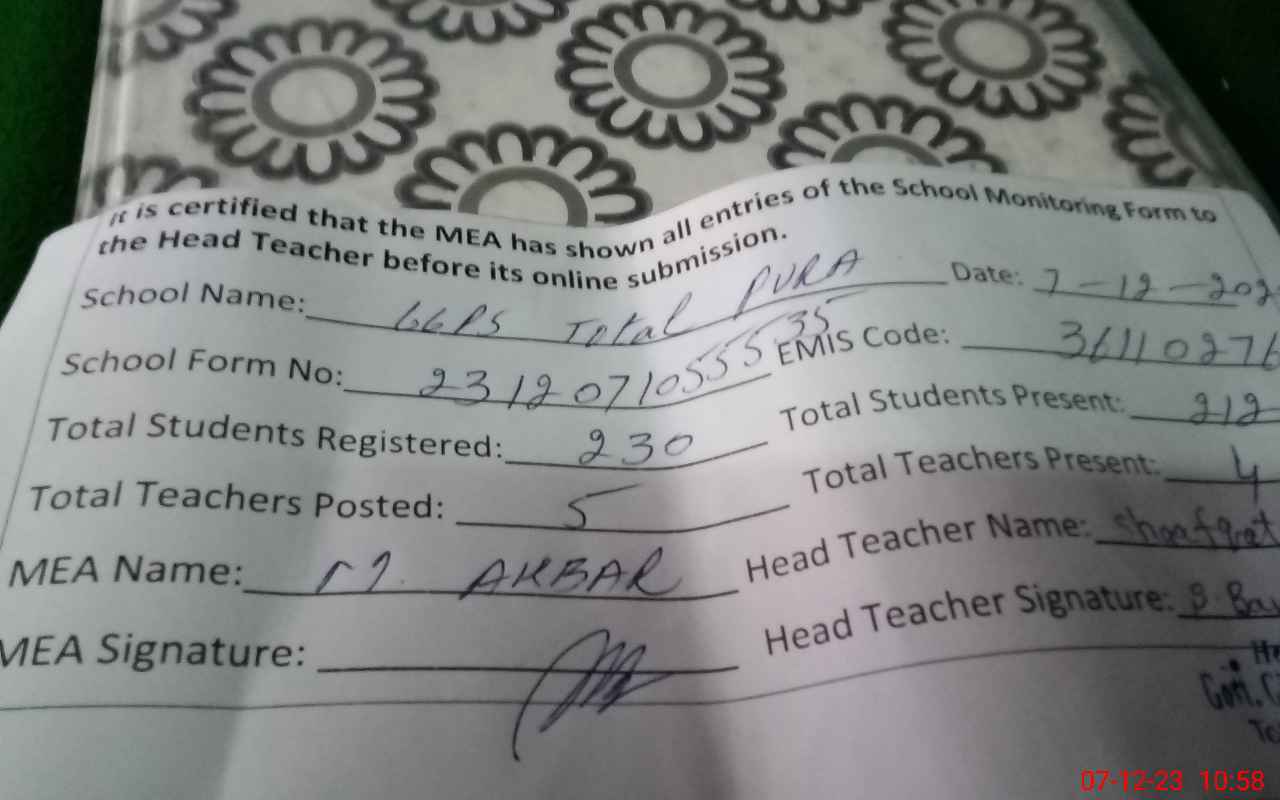 It is certified that the MEA has shown all entries of the School Monitoring Form to
the Head Teacher before its online submission.
School Name: GGPS Total PURA Date: 7-12-202
School Form No: 23120710555535 EMIS Code: 36110276
Total Students Registered: 230 Total Students Present: 212
Total Teachers Posted: 5 Total Teachers Present: 4
MEA Name: M. AKBAR Head Teacher Name:
MEA Signature: Head Teacher Signature:
07-12-23 10:58